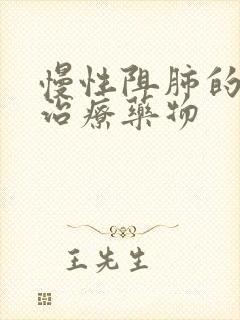 慢性阻肺的
治疗药物
王先生